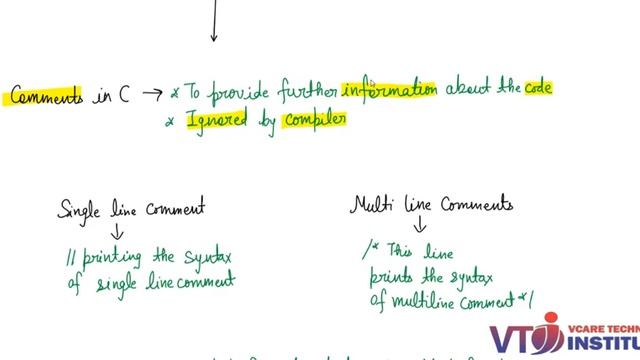 Comments in C → * To provide further information about the code
* Ignored by compiler
Single line comment
// printing the syntax
of single line comment
Multi line Comments
/* This line
prints the syntax
of multiline comment */
VTI
VCARE TECHN
INSTITU